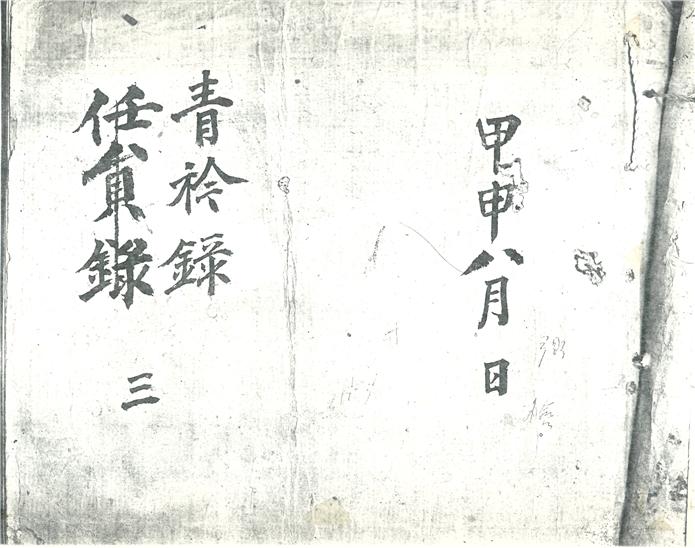 甲申八月 日
青衿錄
任員錄
三